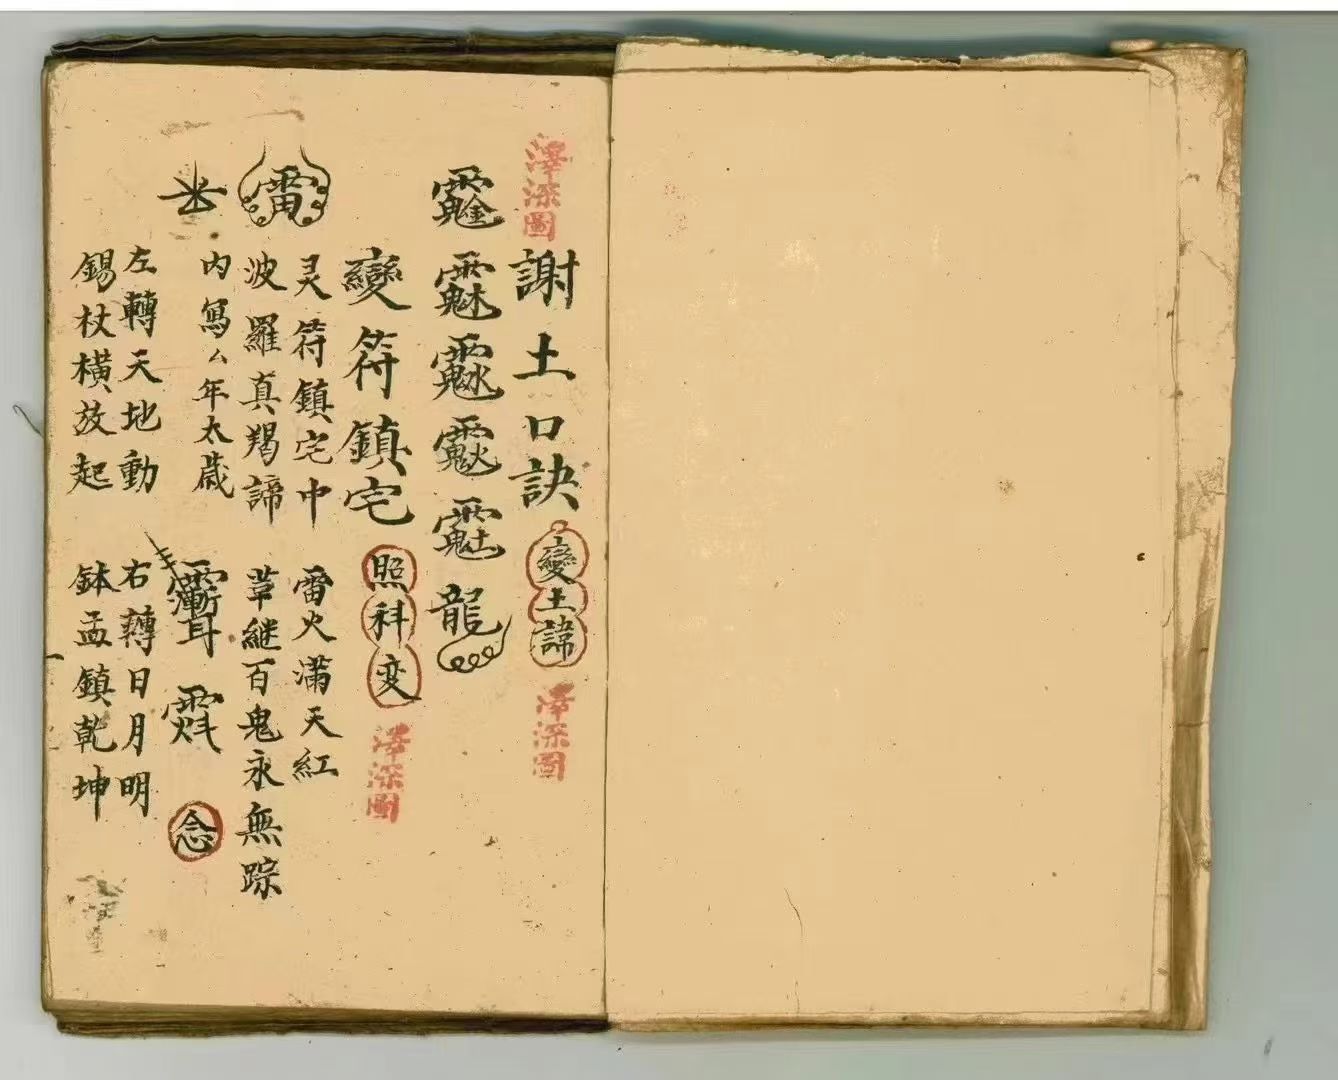 澤深圖
謝土口訣
變土諱
澤深圖
龍
變符鎮宅
照科变
澤深圖
灵符鎮宅中 雷火满天紅
雷
波羅真羯諦 革継百鬼永無踪
内寫厶年太歲
念
左轉天地動 右轉日月明
錫杖橫放起 鉢孟鎮乾坤